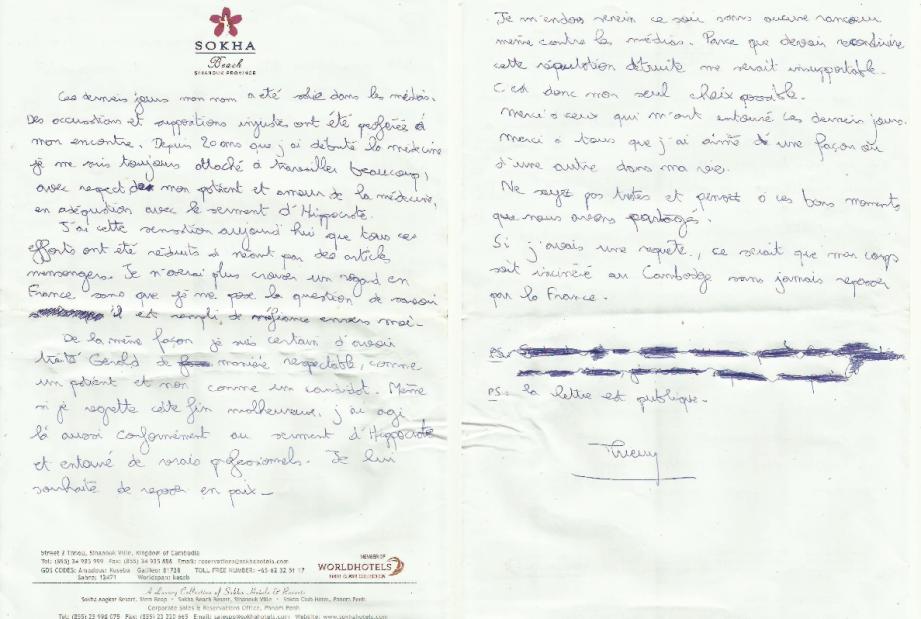 SOKHA
Beach
SIHANOUK PROVINCE
Ces derniers jours mon nom a été salie dans les médias.
Des accusations et suppositions injustes ont été proférée à
mon encontre. Depuis 20 ans que j'ai débuté la médecine
je me suis toujours attaché à travailler beaucoup,
avec respect de mon patient et amour de la médecine,
en adéquation avec le serment d'Hippocrate.
J'ai cette sensation aujourd'hui que tous ces
efforts ont été réduits à néant par des articles
mensongers. Je n'oserai plus croiser un regard en
France sans que je me pose la question de savoir
il est rempli de méfiance envers moi-
De la même façon je suis certain d'avoir
traité Gerald de manière respectable, comme
un patient et non comme un candidat. Même
si je regrette cette fin malheureuse, j'ai agi
là aussi conformément au serment d'Hippocrate
et entouré de vrais professionnels. Je lui
souhaite de reposer en paix-
Street 2 Thnou, Sihanouk Ville, Kingdom of Cambodia
Tel: (855) 34 935 999 Fax: (855) 34 935 888 Email: reservations@sokhahotels.com
GDS CODES: Amadeus: Galileo: 81738 TOLL FREE NUMBER: +65 62 32 51 17
Sabre: 13471 Worldspan:
MEMBER OF
WORLDHOTELS
FIRST CLASS COLLECTION
A Luxury Collection of Sokha Hotels & Resorts
Sokha Angkor Resort, Siem Reap • Sokha Beach Resort, Sihanouk Ville • Sokha Club Hotel, Phnom Penh
Corporate Sales & Reservations Office, Phnom Penh
Website: www.sokhahotels.com
Je m'endors serein ce soir sans aucune rancoeur
même contre les médias. Parce que devoir reconstruire
cette réputation détruite me serait insupportable.
C'est donc mon seul choix possible.
Merci à ceux qui m'ont entouré ces derniers jours.
Merci à tous que j'ai aimé d'une façon ou
d'une autre dans ma vie.
Ne soyez pas tristes et pensez à ces bons moments
que nous avons partagés.
Si j'avais une requête, ce serait que mon corps
soit incinéré au Cambodge sans jamais repasser
par la France.
PS:
PS: la lettre est publique.
Thierry